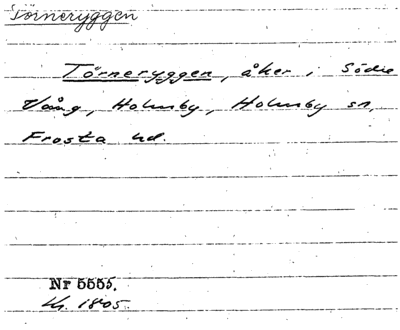 Törneryggen
Törneryggen, åker i Södre
Vång, Holmby, Holmby sn,
Frosta hd.
Nr 5555.
Kh. 1805